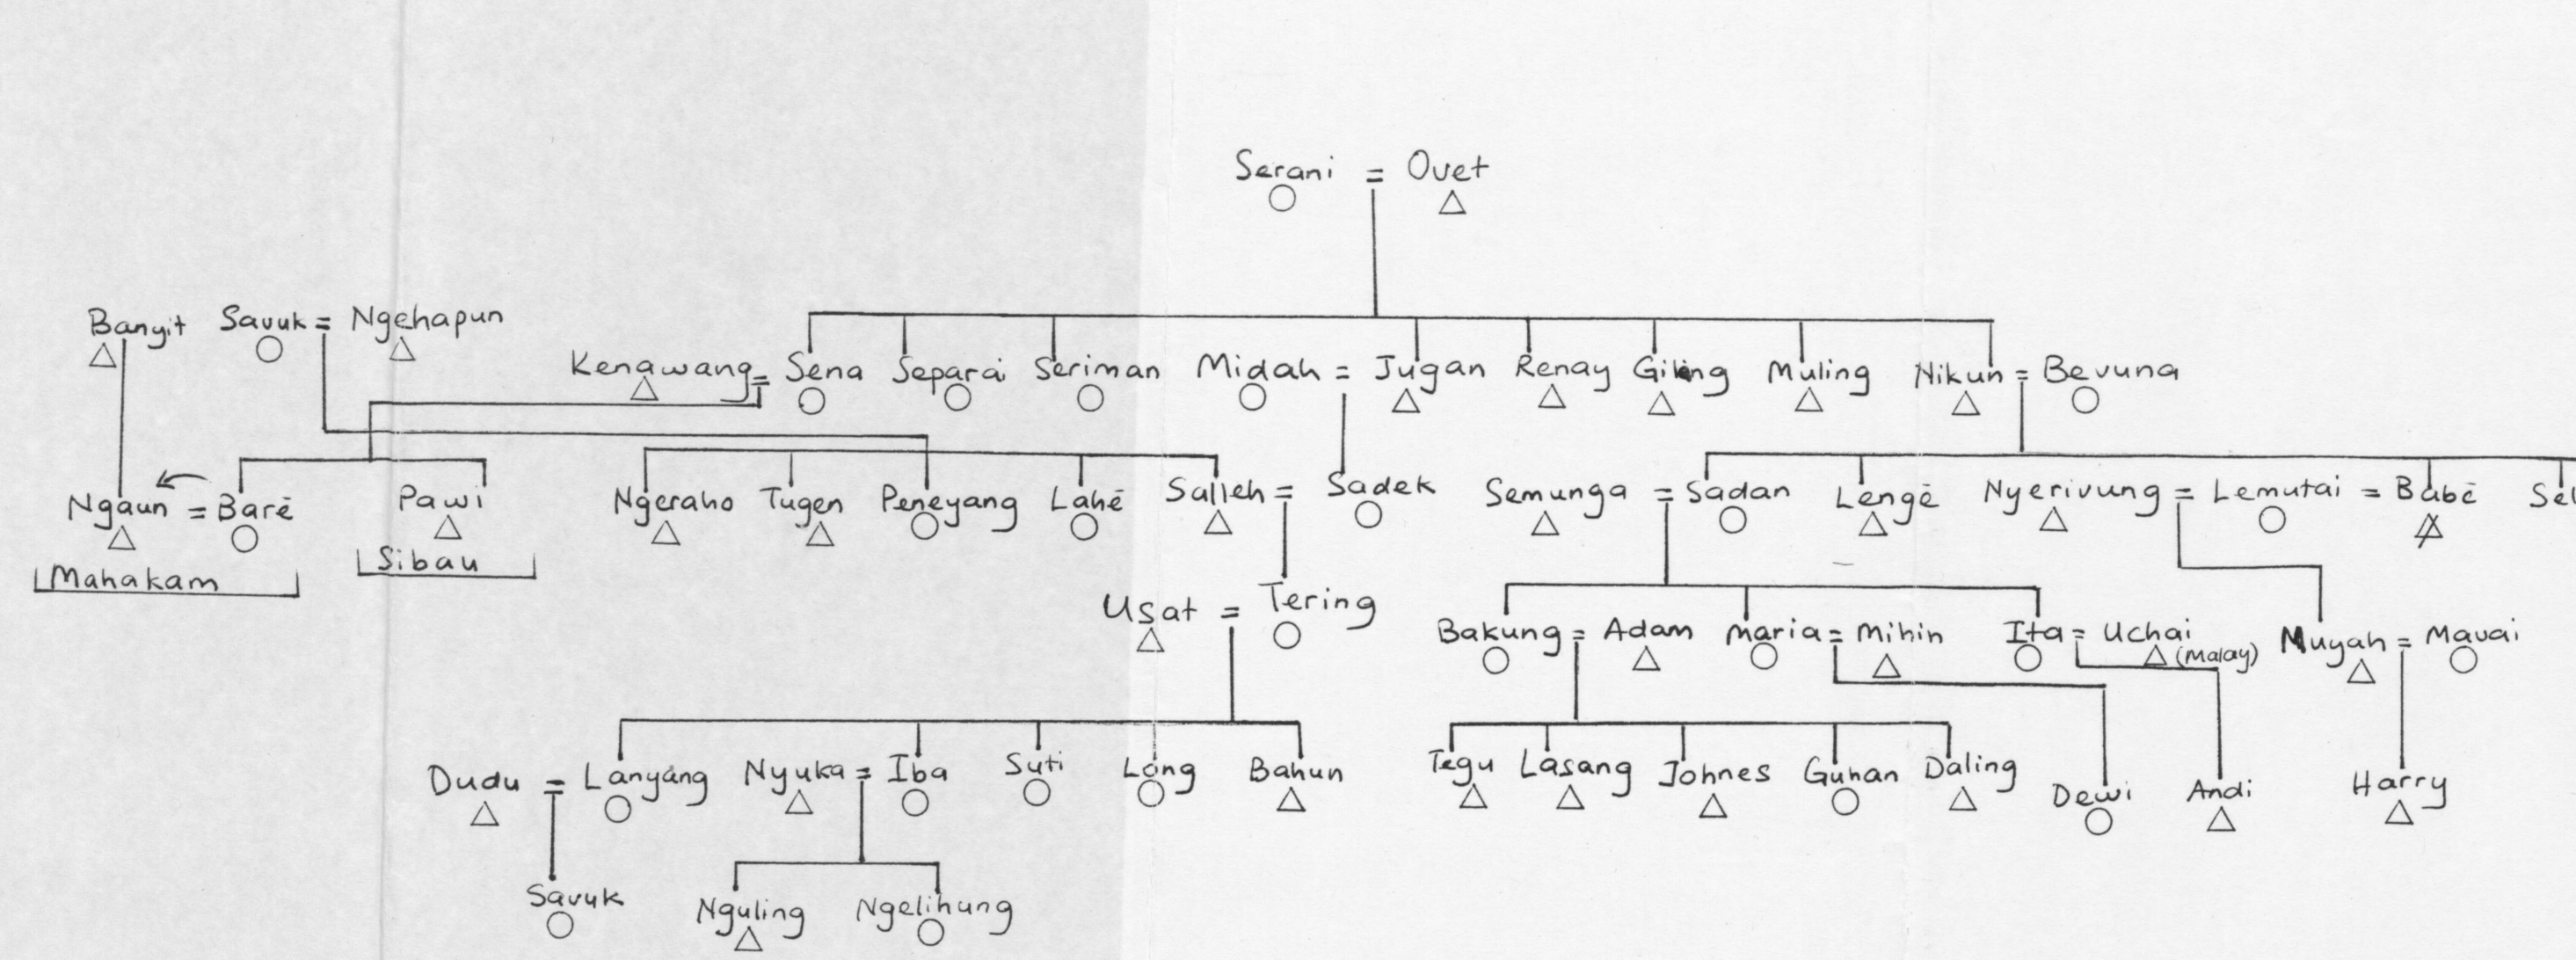 Serani = Ovet
Banyit Savuk = Ngehapun
Kenawang = Sena Separai Seriman Midah = Jugan Renay Giling Muling Nikun = Bevuna
Ngaun = Barē Pawi Ngeraho Tugen Peneyang Lahē Salleh = Sadek Semunga = Sadan Lengē Nyerivung = Lemutai = Babē
Mahakam Sibau
Usat = Tering
Bakung = Adam Maria = Mihin Ita = Uchai Muyah = Mavai
(Malay)
Dudu = Lanyang Nyuka = Iba Suti Long Bahun Tegu Lasang Johnes Guhan Daling Dewi Andi Harry
Savuk Nguling Ngelihung